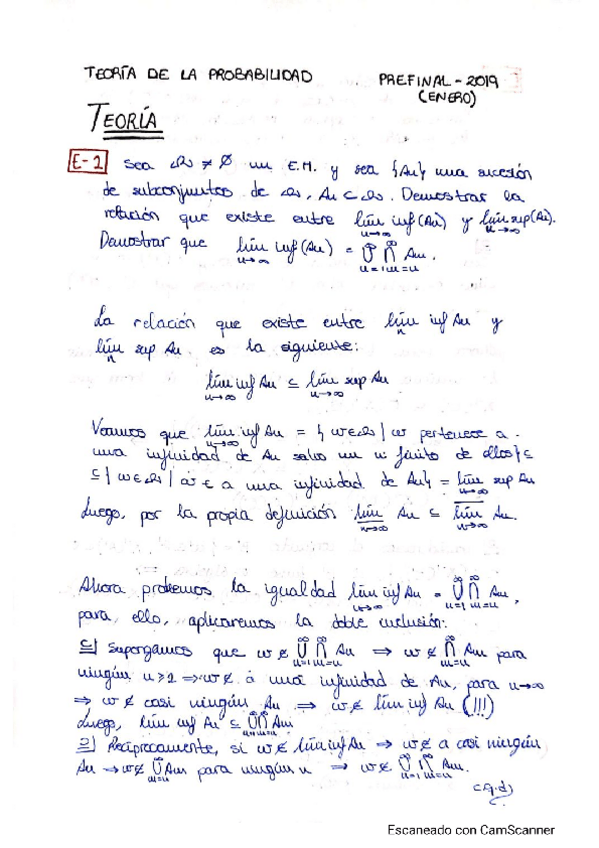 TEORÍA DE LA PROBABILIDAD PREFINAL - 2019
(ENERO)
TEORÍA
E-1 Sea Ω ≠ ∅ un E.M. y sea {An} una sucesión
de subconjuntos de Ω, An ⊂ Ω. Demostrar la
relación que existe entre lím inf (An) y lím sup (An).
n→∞ n→∞
Demostrar que lím inf (An) = ∪ ∩ Am.
n→∞ n=1 m=n
La relación que existe entre lím inf An y
lím sup An es la siguiente:
lím inf An ⊆ lím sup An
n→∞ n→∞
Veamos que lím inf An = {ω∈Ω | ω pertenece a
una infinidad de An salvo un nº finito de ellos} ⊆
⊆ {ω∈Ω | ω ∈ a una infinidad de An} = lím sup An
Luego, por la propia definición lím An ⊆ lím An.
Ahora probemos la igualdad lím inf An = ∪ ∩ Am,
para ello, aplicaremos la doble inclusión:
⊆] Supongamos que ω ∉ ∪ ∩ Am ⇒ ω ∉ ∩ Am para
ningún n ≥ 1 ⇒ ω ∉ a una infinidad de An, para n→∞
⇒ ω ∉ casi ningún An ⇒ ω ∉ lím inf An (!!!)
Luego, lím inf An ⊆ ∪ ∩ Am
⊇] Recíprocamente, si ω ∉ lím inf An ⇒ ω ∉ a casi ningún
An ⇒ ω ∉ ∩ Am para ningún n ⇒ ω ∉ ∪ ∩ Am.
c.q.d)
Escaneado con CamScanner